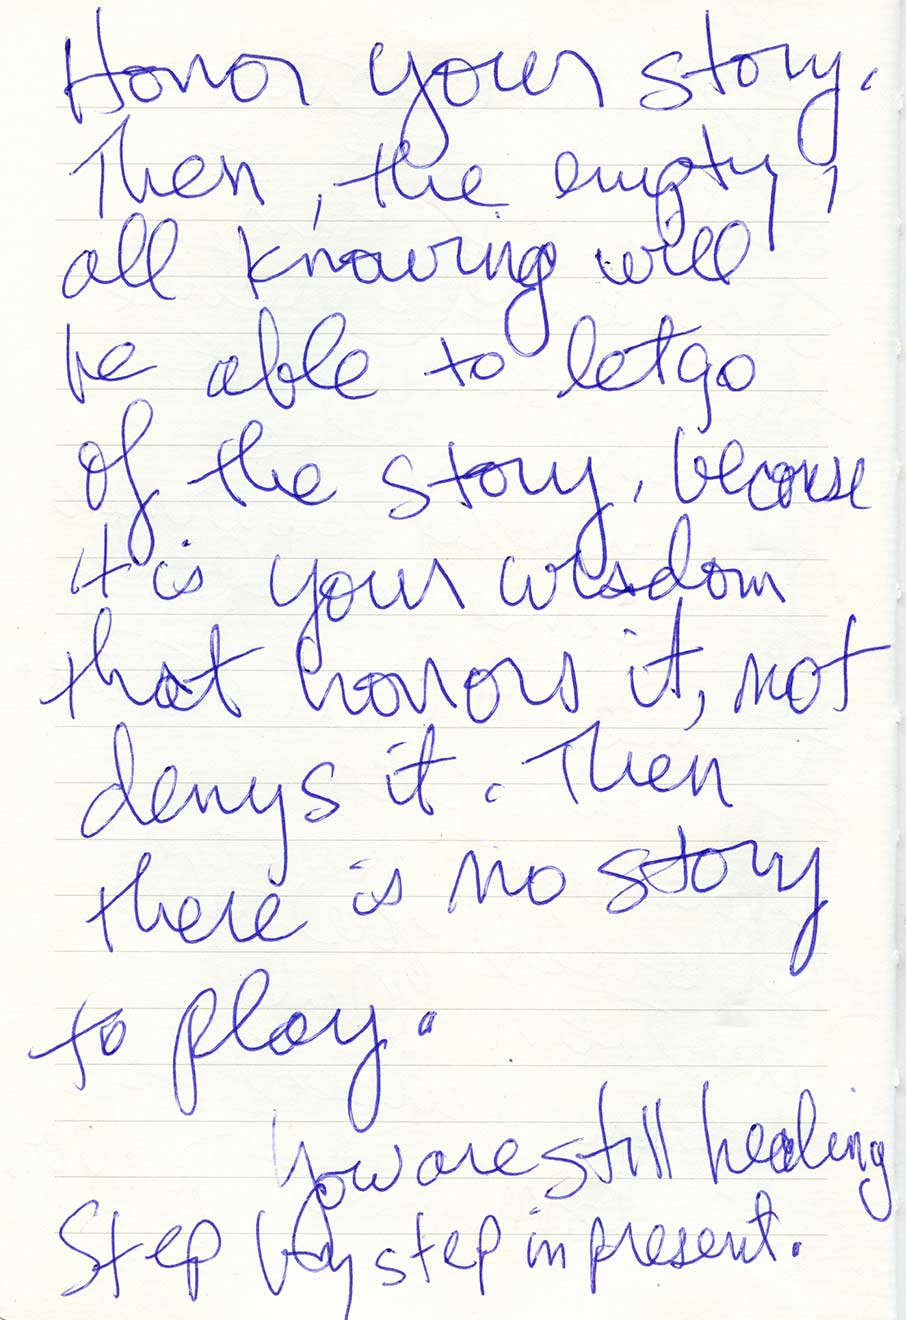 Honor your story.
Then, the empty,
all knowing will
be able to let go
of the story, because
it is your wisdom
that honors it, not
denys it. Then
there is no story
to play.
You are still healing
Step by step in present.